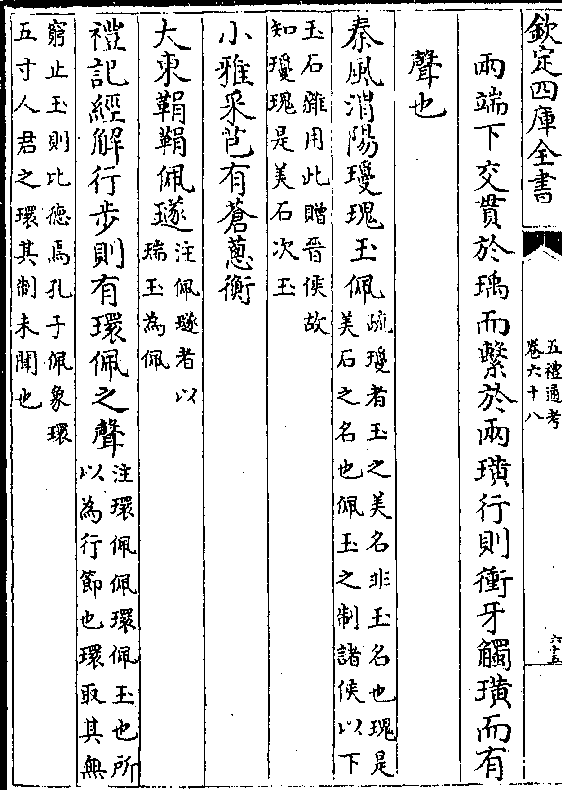 欽定四庫全書
五禮通考
卷六十八
六十五
兩端下交貫於瑀而繫於兩璜行則衝牙觸璜而有
聲也
秦風渭陽瓊瑰玉佩疏瓊者玉之美名非玉名也瑰是
美石之名也佩玉之制諸侯以下
玉石雜用此贈晉侯故
知瓊瑰是美石次玉
小雅采芑有蒼蔥衡
大東鞙鞙佩璲注佩璲者以
瑞玉為佩
禮記經解行步則有環佩之聲注環佩佩環佩玉也所
以為行節也環取其無
窮止玉則比德焉孔子佩象環
五寸人君之環其制未聞也